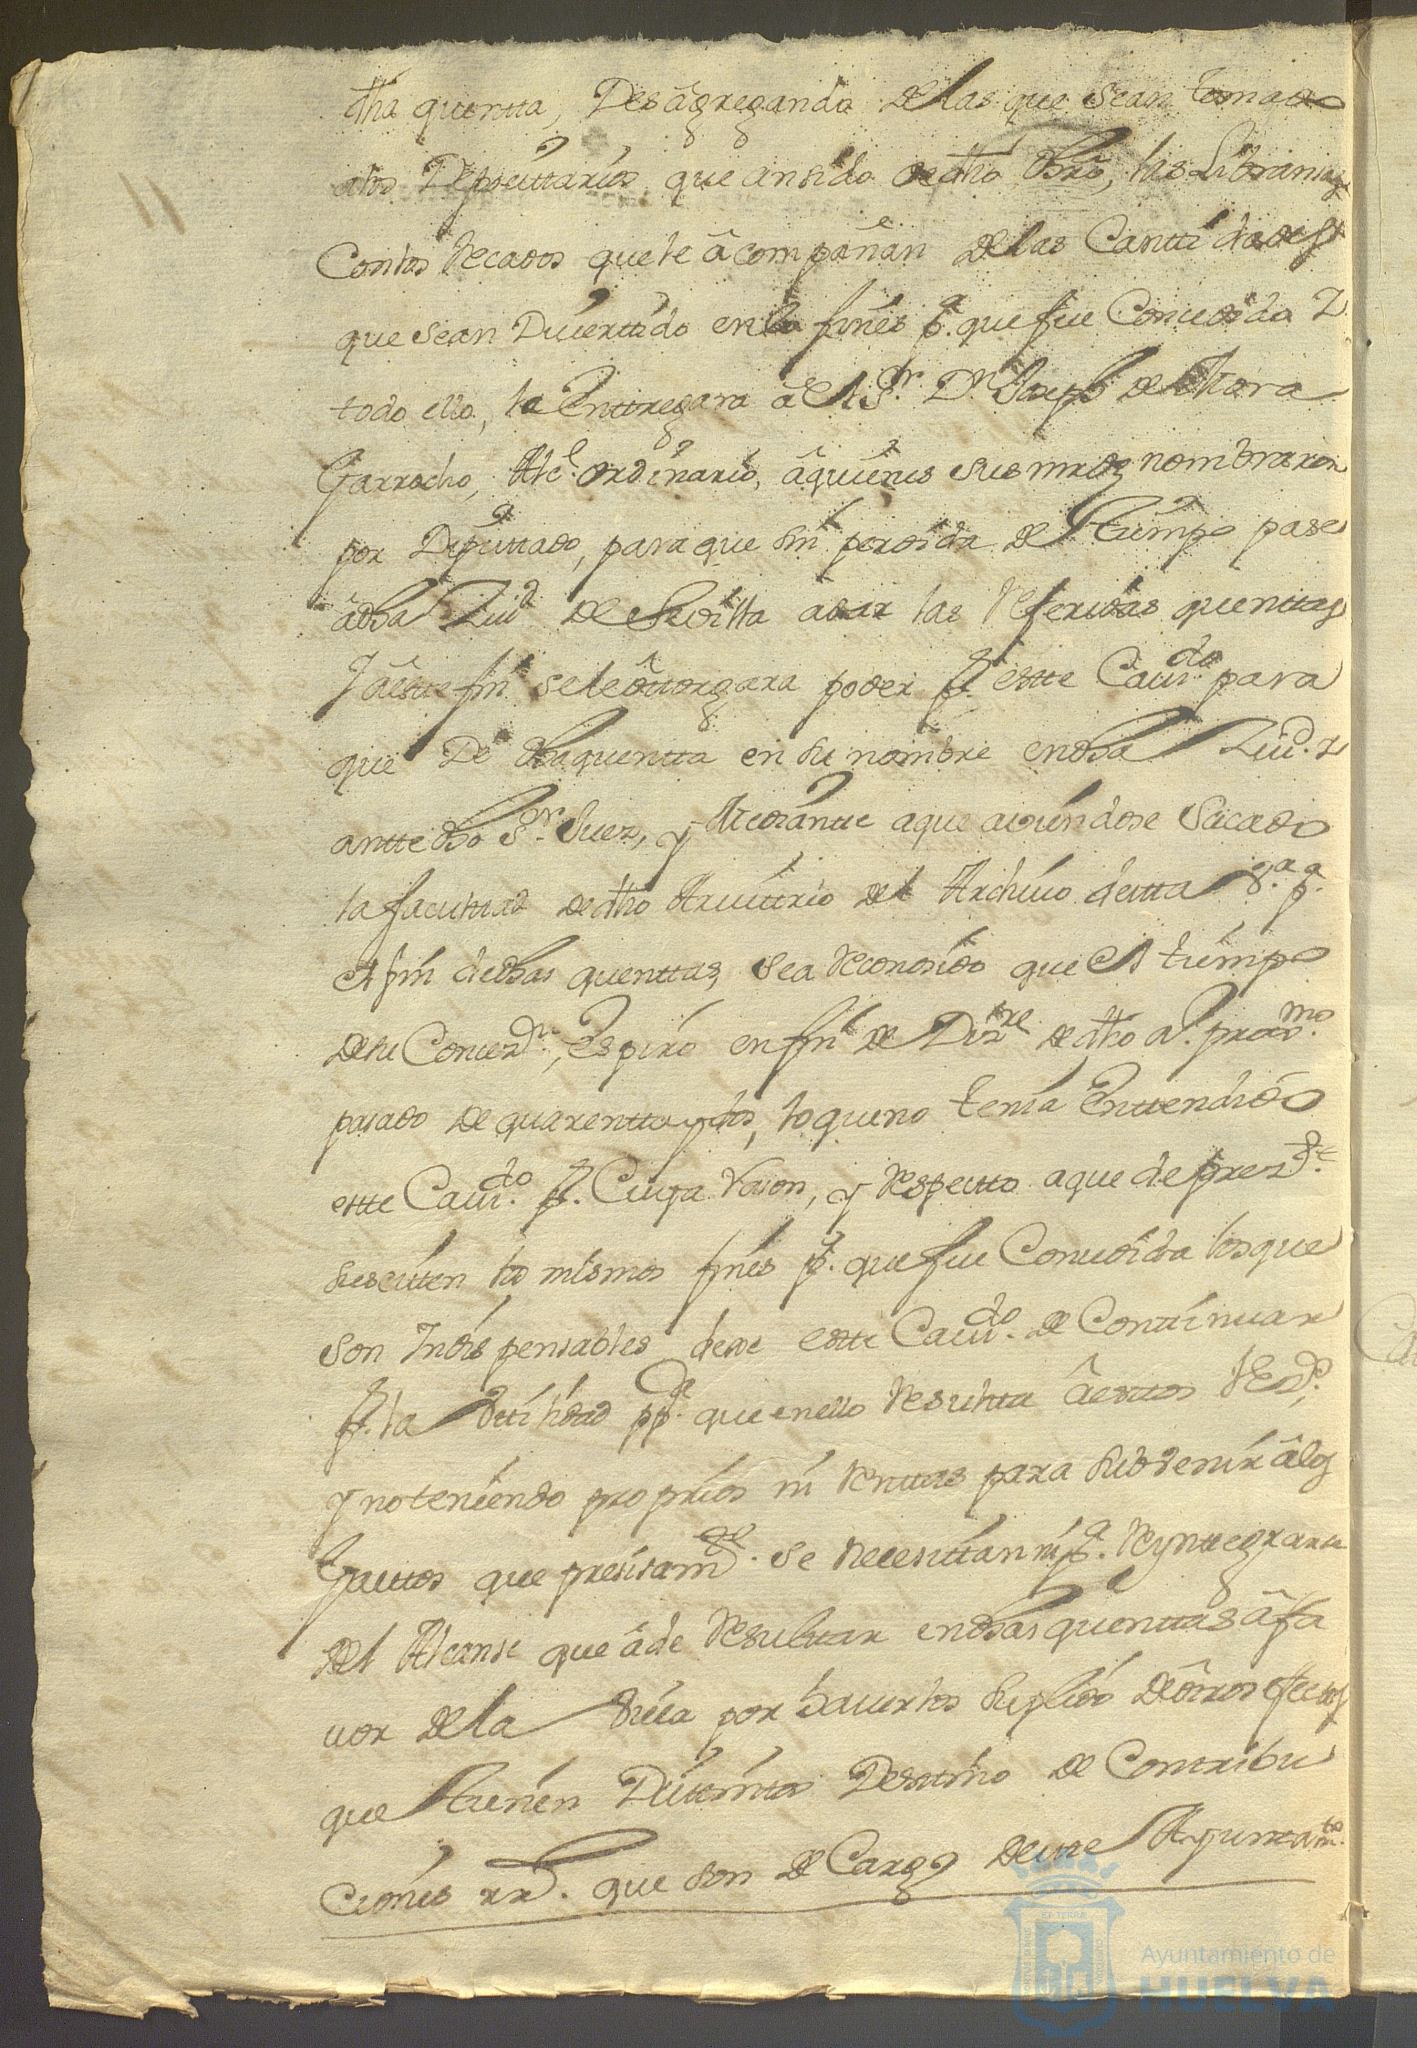 dha quentta, Desagregando de las que sean tomado
alos Depocittarios, que an sido de dho advro, las Libranzas
Con los Recados que le acompañan de las Canttidades
que sean Divertido en los fines pa. que fue Concedida Y
todo ello, le Enttregara a el Sr. Dn Joseph de Mora
Garrocho, Alce. ordinario, a quienes sus mrdes nombraron
por Diputtado, para que sin perdida de Tiempo pase
a dha Ziud. de Sevilla a dar las Referidas quenttas
Y a este fin se le ottorgara poder pr. estte Cavdo. para
que De dha quentta en su nombre en dha Ziud. y
antte dho Sr. Juez, y Mediante a que aviendose Sacado
la facultad de dho Arvitrio del Archivo de esta Va. pa.
el fin de dhas quenttas, se a Reconosido que el tiempo
de su Concezn., Espiró en fin de Dizre de dho a. proxmo.
pasado de quarentta y dos, lo que no tenia Enttendido
estte Cavdo. pr. Cuya Rason, y Respectto a que de prezte.
subsciten los mismos fines pa. que fue Concedida los que
son Indispensables deve este Cavdo. de Conttinuar
pr. la Uttilidad ppca. que en ello Resultta a esttos Vezos.
y no teniendo proprios ni Renttas para subvenir a los
Gasttos que presisamte. se Necesittan ni pa. Reynttegrarse
del Alcanse que a de Resulttar en dhas quenttas a fa
vor de la Villa por haverlos suplido de otros efectos
que Tienen Disttintos Desttino de Contribu
Ciones rrs. que son de Cargo de este Ayuntamto.
Ayuntamiento de
HUELVA